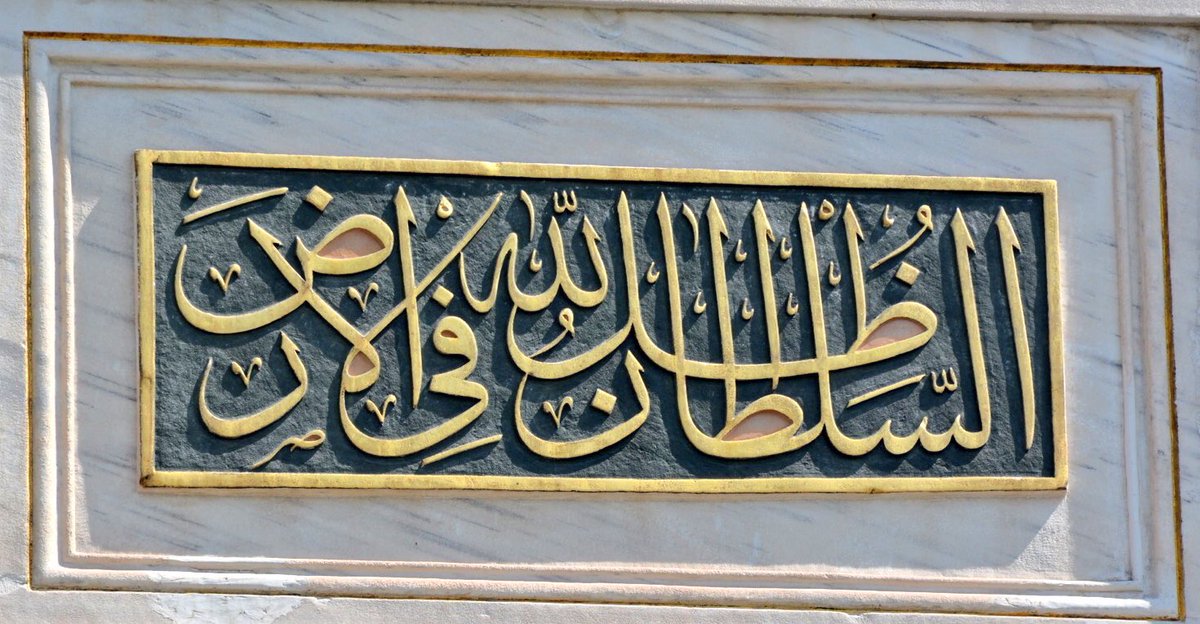 السلطان ظل الله فى الارض